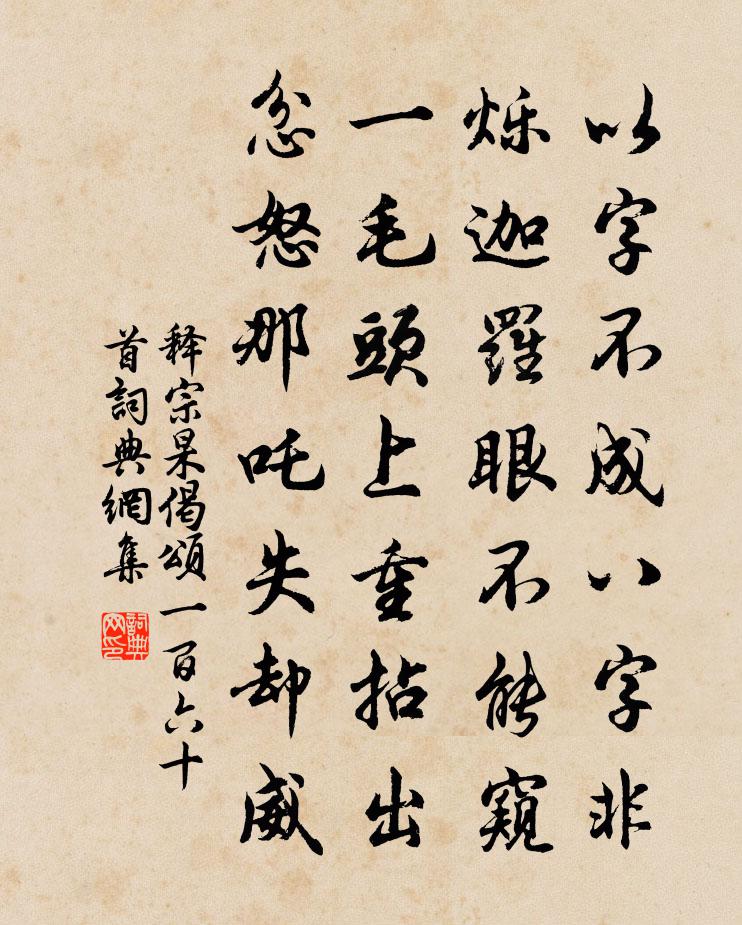 以字不成八字非
烁迦羅眼不能窺
一毛頭上重拈出
忿怒那吒失却威
释宗杲偈頌一百六十
首詞典網集
詞典网印